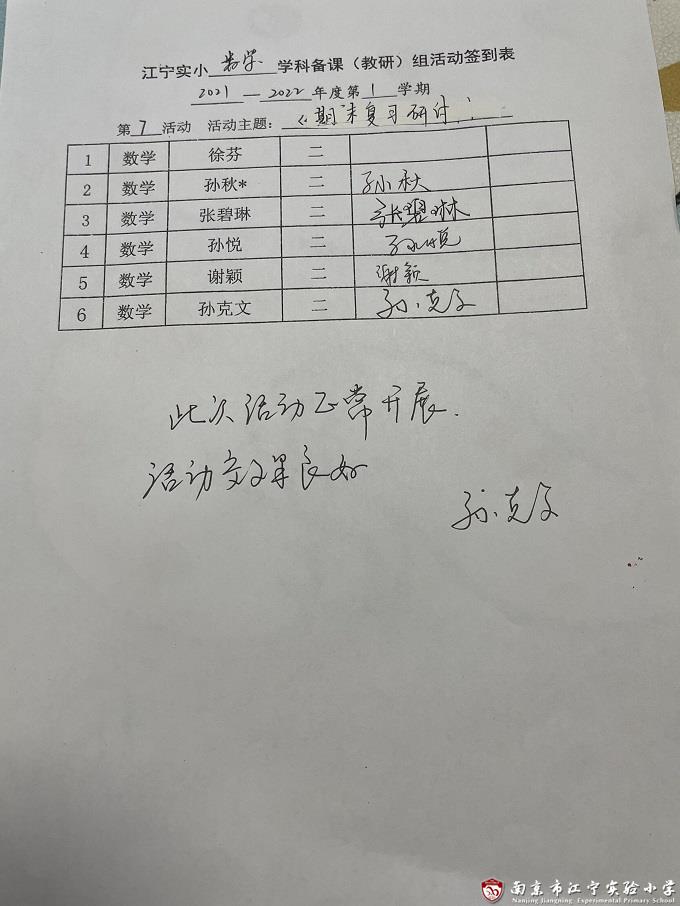 江宁实小 数学 学科备课（教研）组活动签到表
2021 — 2022 年度第 1 学期
第 7 活动 活动主题：《期末复习研讨》
1 数学 徐芬 二
2 数学 孙秋* 二 孙秋
3 数学 张碧琳 二 张碧琳
4 数学 孙悦 二 孙悦
5 数学 谢颖 二 谢颖
6 数学 孙克文 二 孙克文
此次活动正常开展.
活动效果良好
孙克文
南京市江宁实验小学
Nanjing Jiangning Experimental Primary School